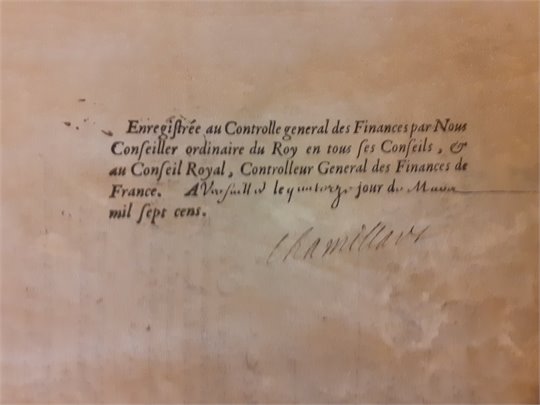 Enregiſtrée au Controlle general des Finances par Nous
Conſeiller ordinaire du Roy en tous ſes Conſeils, &
au Conſeil Royal, Controlleur General des Finances de
France. A Versailles le quatorze jour de Mars
mil ſept cens.
Chamillart